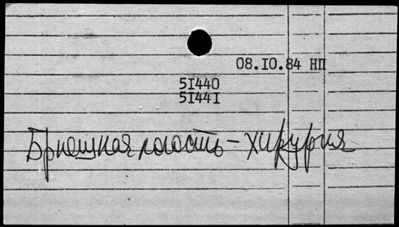 08.IO.84 НП
5I440
5I44I
Брюшная полость – хирургия